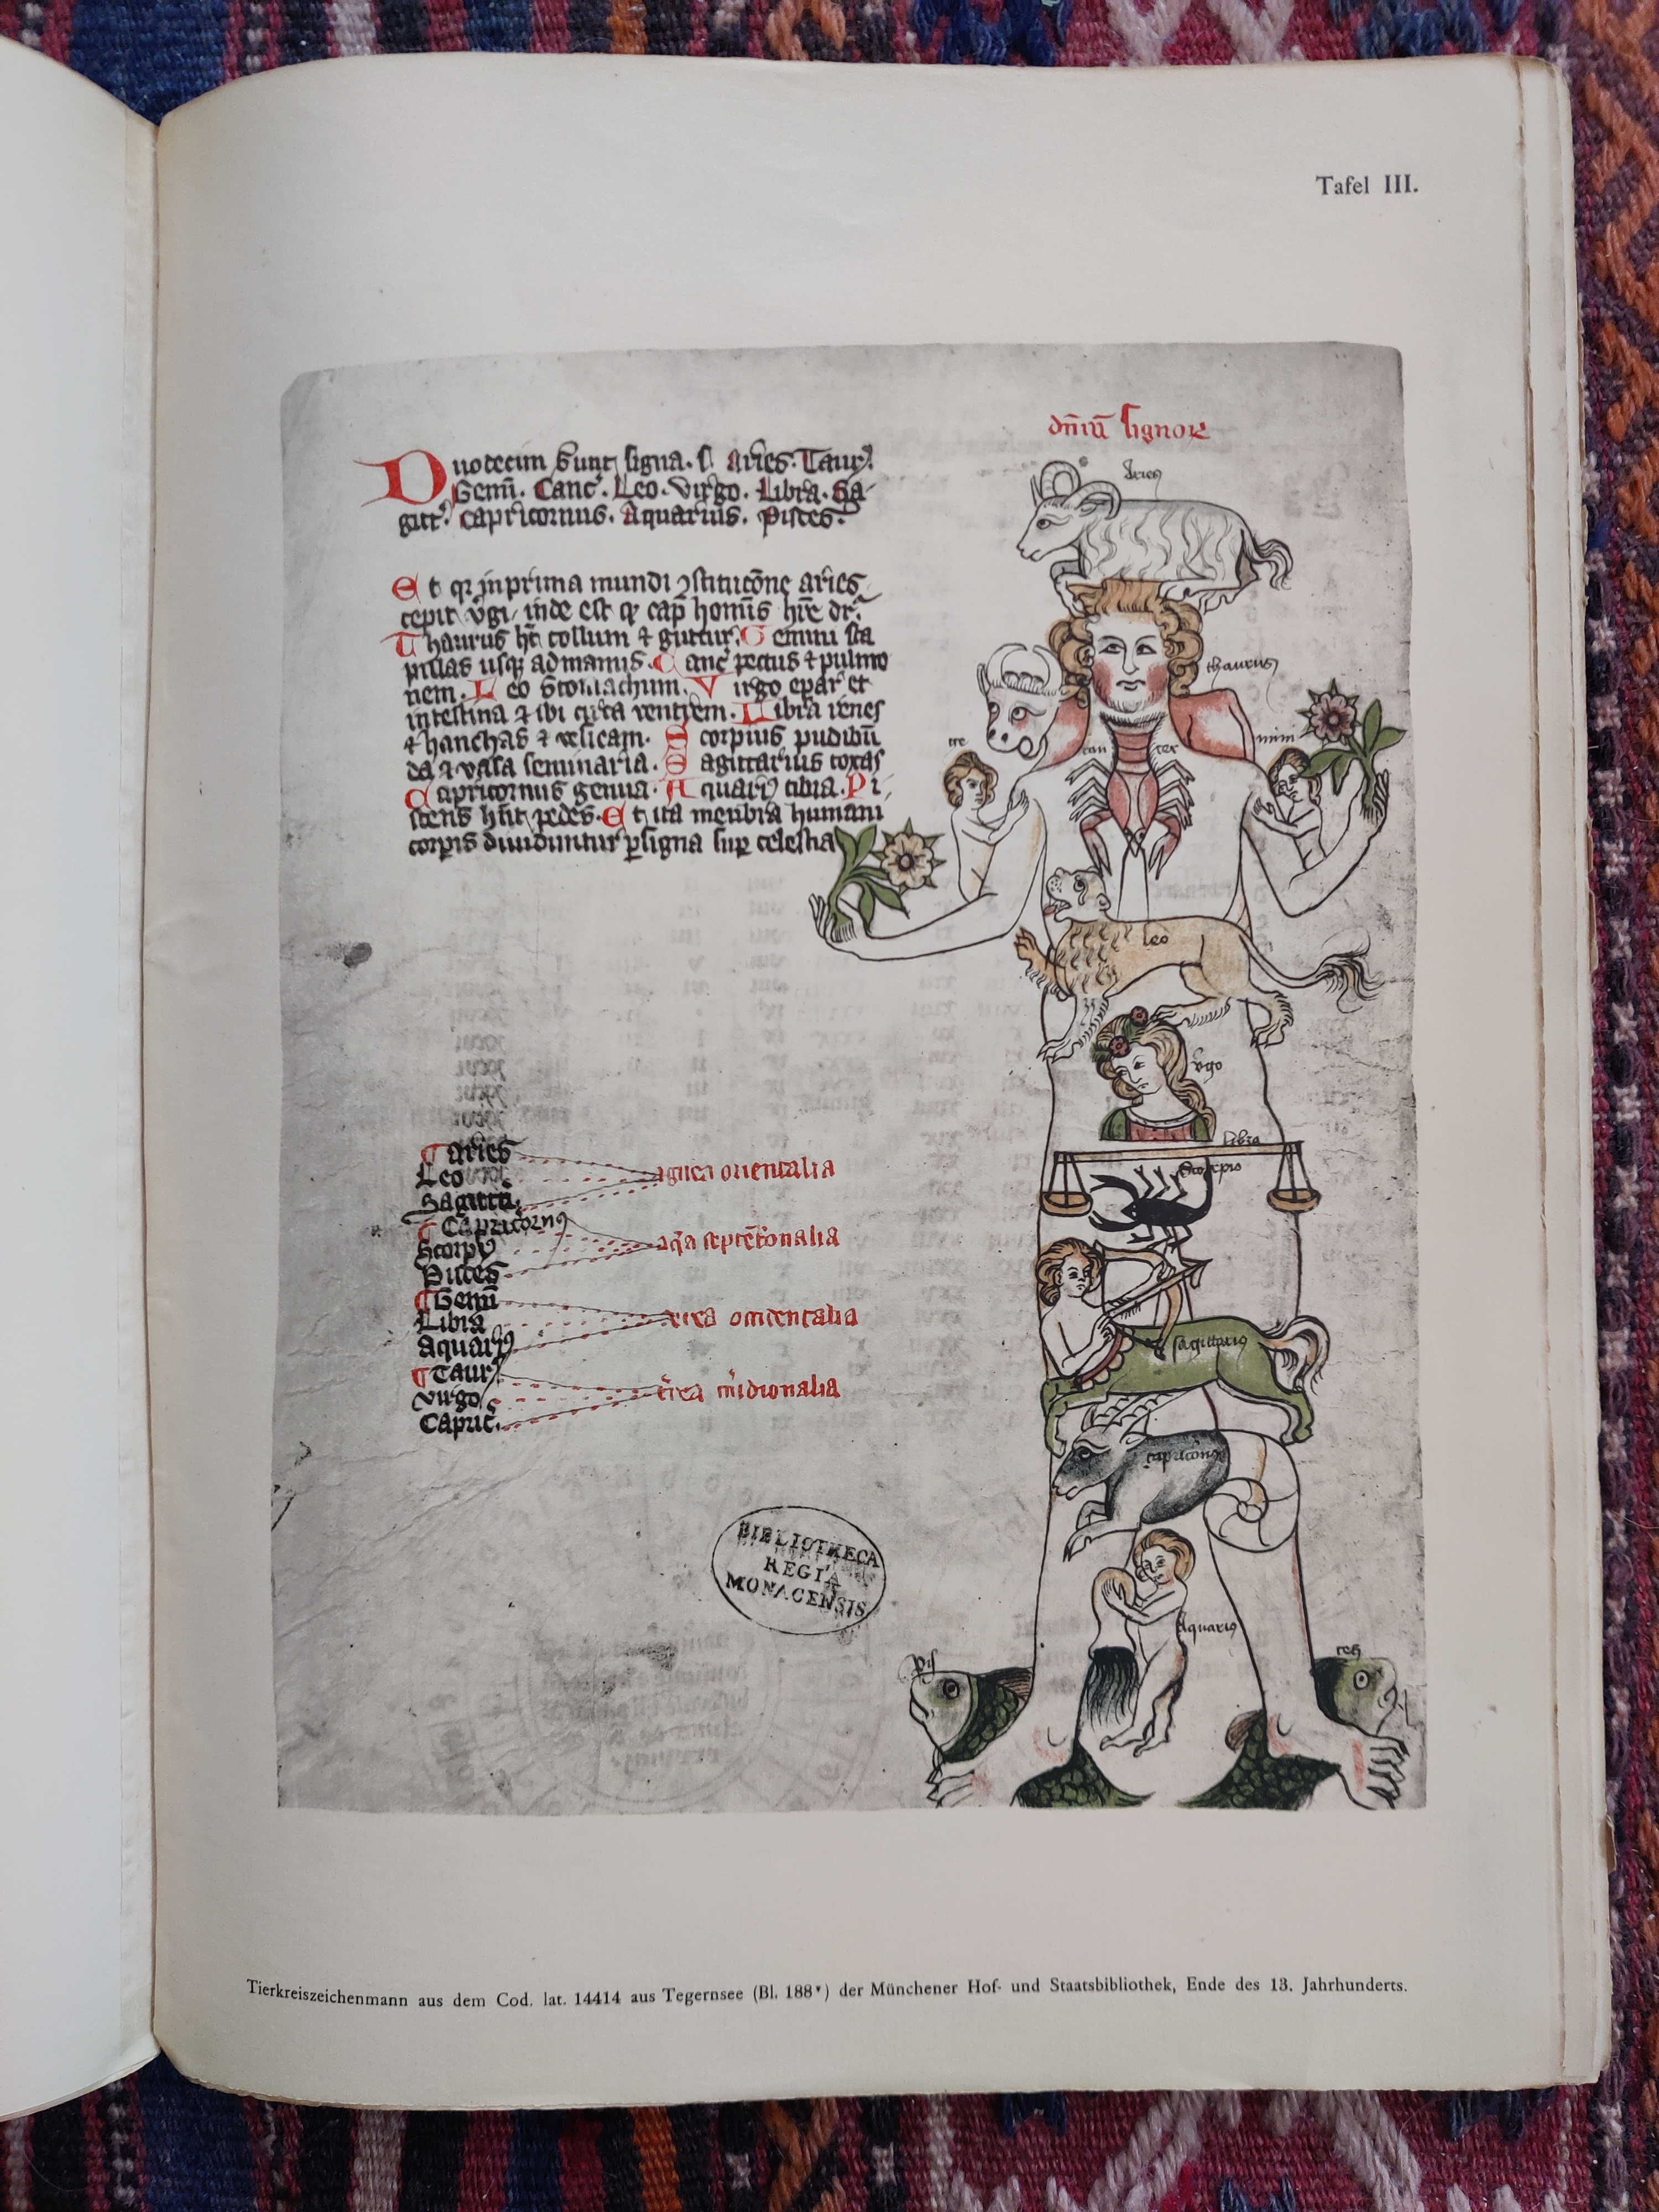 Tafel III.
Duodecim sunt signa. s. Aries. Taur9.
Gemī. Canc͛. Leo. Virgo. Libra. Sa-
gitt9. Capricornus. Aquarius. Pisces.
Et qr in prima mundi ɔstitucōne aries
cepit v͛gi, inde est qꝫ cap̄ homīs hr̄e dr̄.
Thaurus hꝫ collum ⁊ guttur. Gemini sca
pulas usqꝫ ad manus. Canc͛ pectus ⁊ pulmo
nem. Leo Stomachum. Virgo epar et
intestina ⁊ ibi circa ventrem. Libra renes
⁊ hanchas ⁊ vesicam. Scorpius pudibū
da ⁊ vasa seminaria. Sagittarius coxas
Capricornus genua. Aquari9 tibia. Pi,
sces hn̄t pedes. Et ita membra humani
corp̄is diuiduntur ꝑ signa suꝑ celestia
dn̄iū signoꝝ
Aries
thaurus
ge
mini
can
cer
leo
v͛go
libra
Scorpio
sagittari9
capricorn9
Aquari9
pis
ces
Aries
Leo
Sagitt
Capricorn9
Scorpi9
Pisces
ignea orientalia
aq̄a septēt͛onalia
Gemī
Libra
Aquari9
aerea occidentalia
Taur9
virgo
Capric͛.
t͛rea m͛idionalia
BIBLIOTHECA
REGIA
MONACENSIS.
Tierkreiszeichenmann aus dem Cod. lat. 14414 aus Tegernsee (Bl. 188ᵛ) der Münchener Hof- und Staatsbibliothek, Ende des 13. Jahrhunderts.